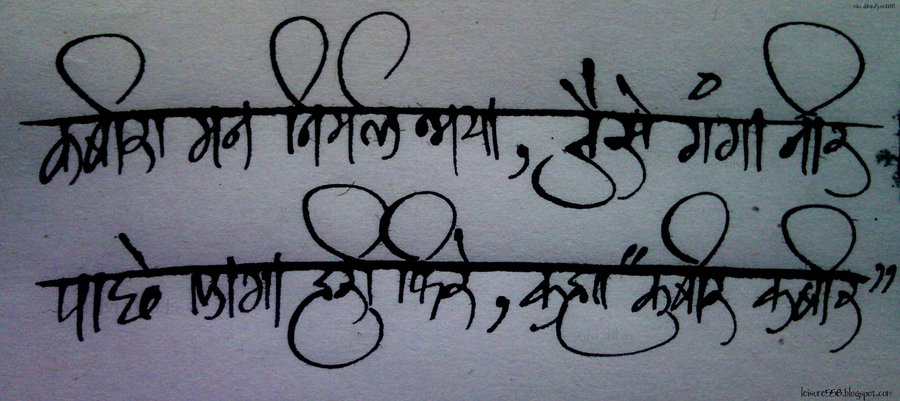 कबीरा मन निर्मल भया, जैसे गंगा नीर
पाछे लागा हरी फिरे, कहा "कबीर कबीर"
leisure558.blogspot.com